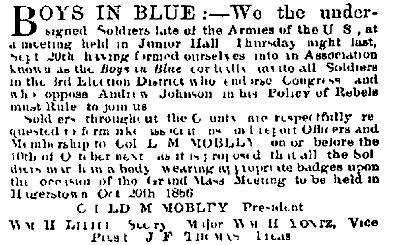 BOYS IN BLUE:—We the under-
signed Soldiers late of the Armies of the U S, at
a meeting held in Junior Hall Thursday night last,
Sept 20th having formed ourselves into an Association
known as the Boys in Blue cordially invite all Soldiers
in the 3rd Election District who endorse Congress and
who oppose Andrew Johnson in his Policy of Rebels
must Rule to join us
Soldiers throughout the County are respectfully re-
quested to form like associations and report Officers and
Membership to Col L M MOBLEY on or before the
10th of October next as it is proposed that all the Sol
diers march in a body wearing appropriate badges upon
the occasion of the Grand Mass Meeting to be held in
Hagerstown Oct 20th 1866
MOBLEY President
Secty Major Wm H Vice
Prest J F THOMAS Treas